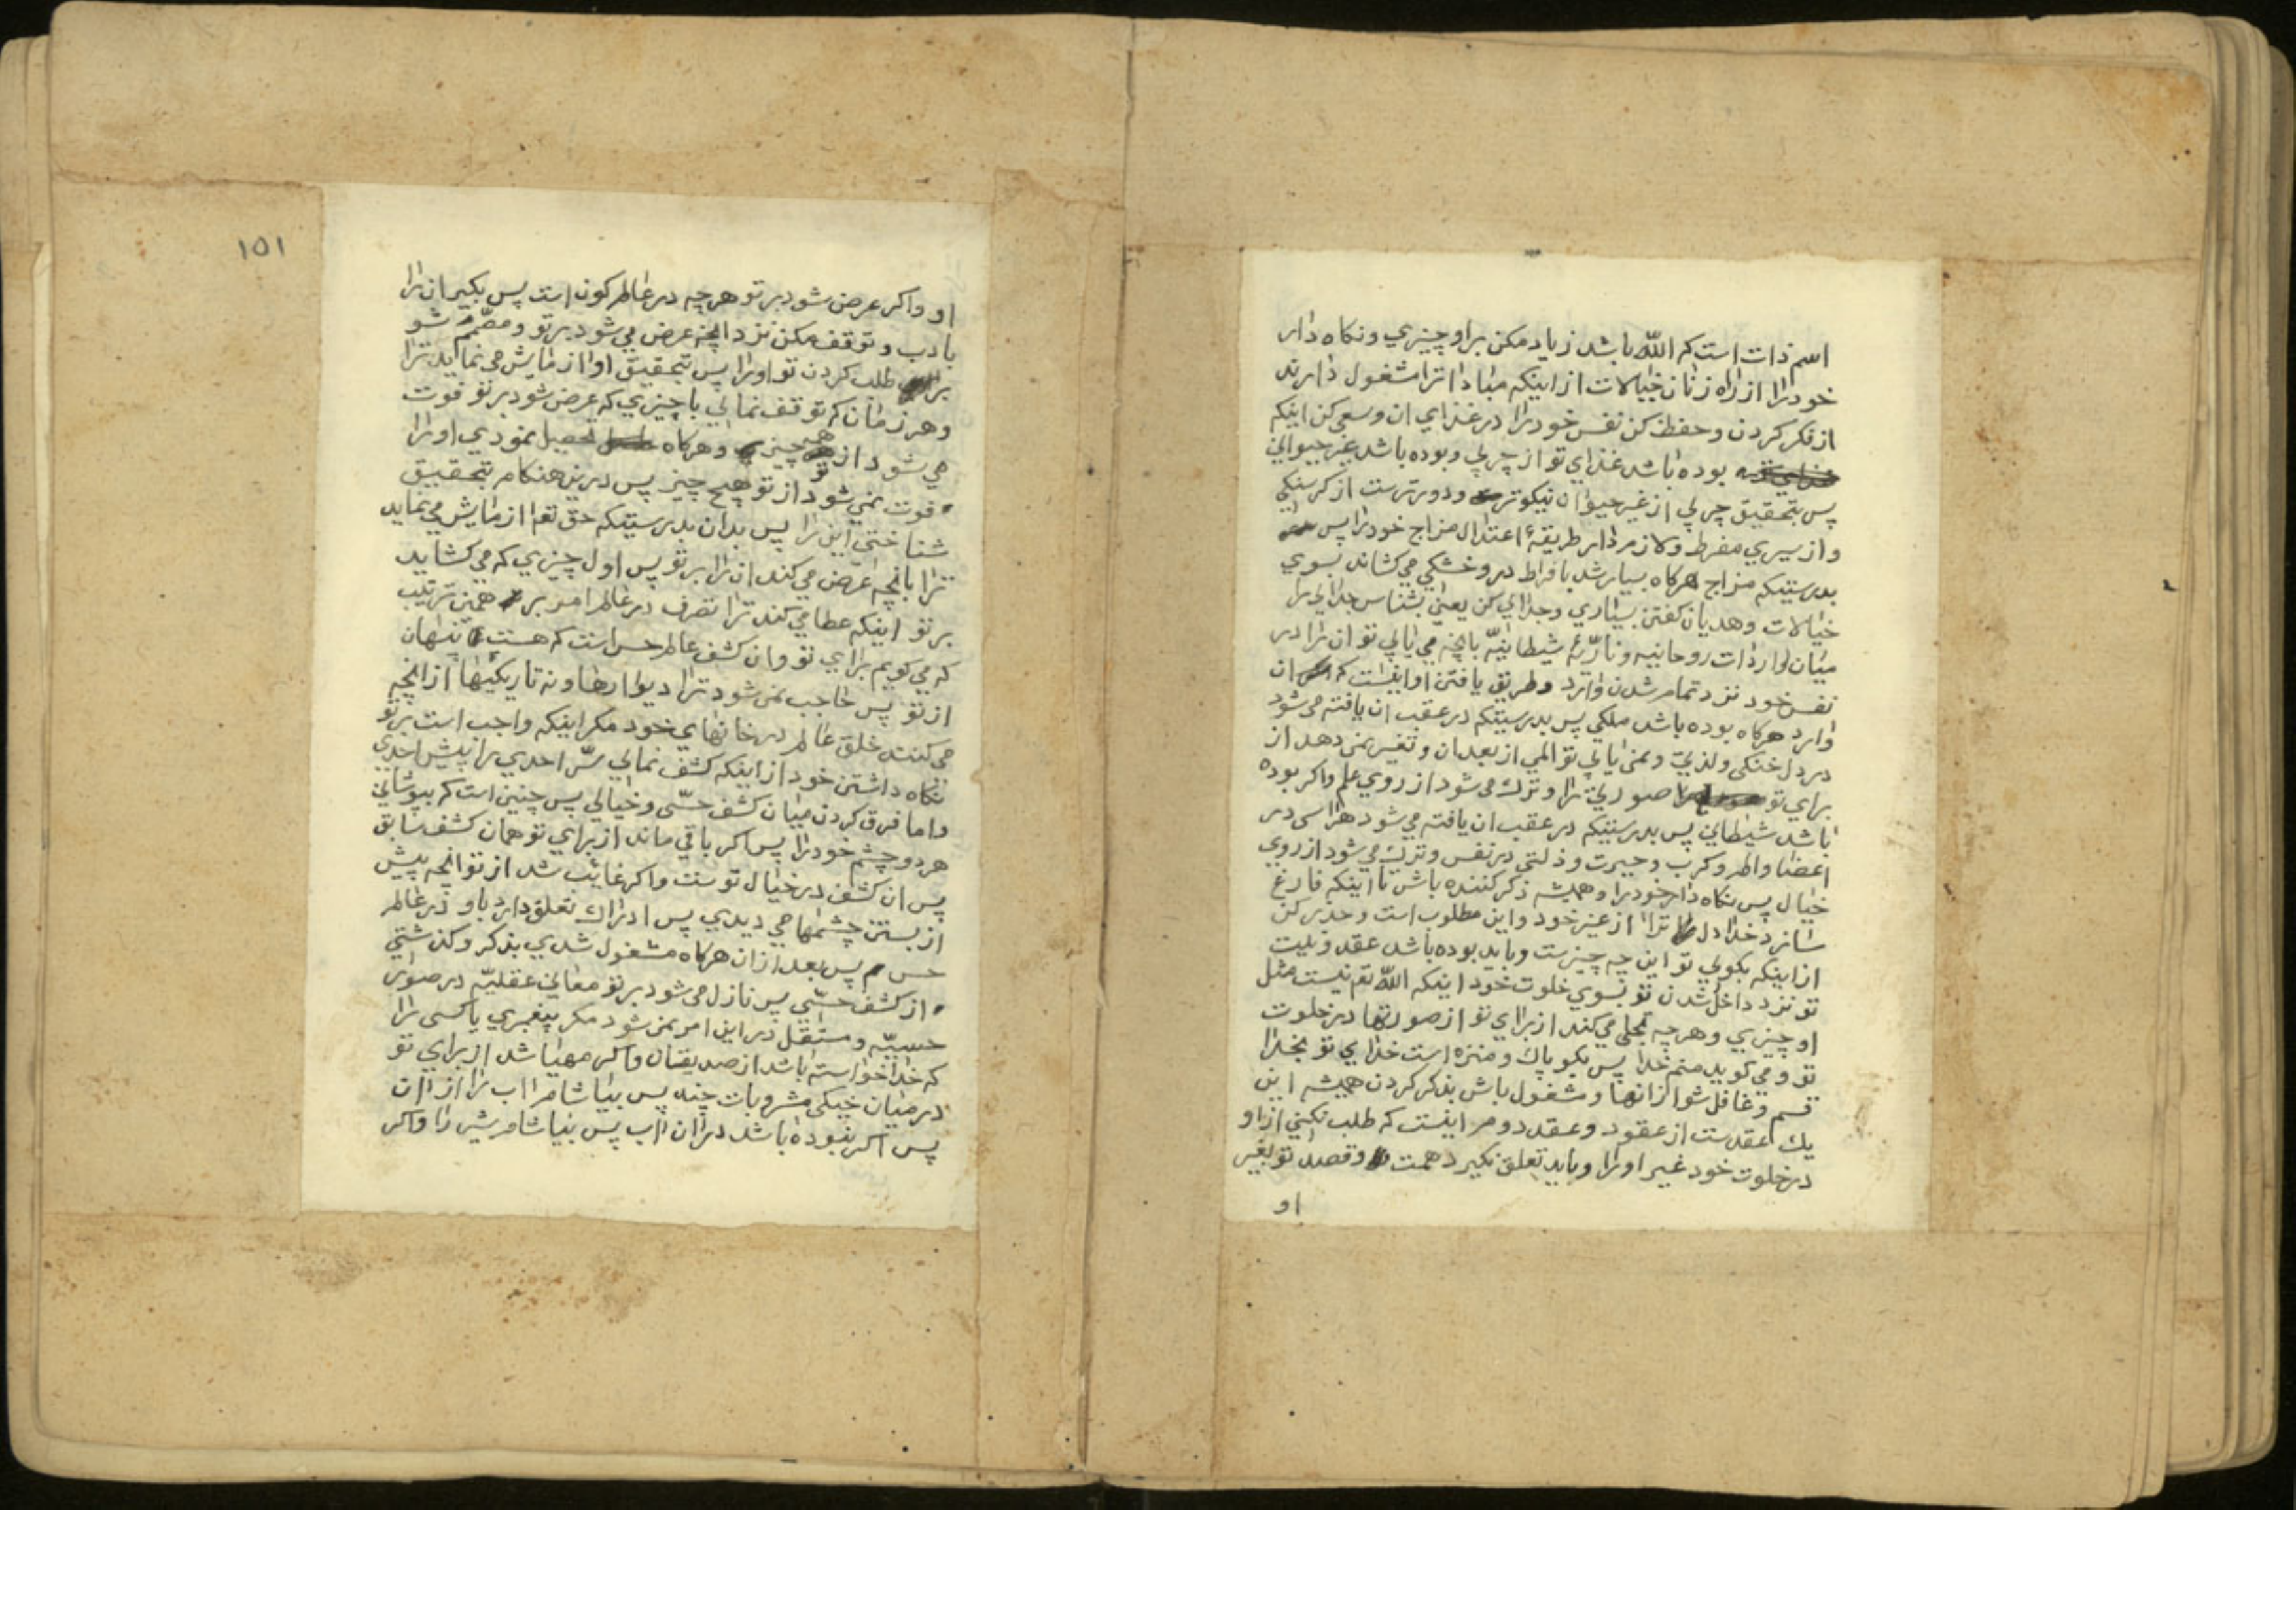 اسم ذات است که اللّه باشد زیاد مکن براو چیزي ونکاه دار
خودرا از راه زنان خیالات از اینکه مبادا ترا مشغول دارند
از فکر کردن وحفظ کن نفس خودرا در غذاي ان وسعی کن اینکه
بوده باشد غذاي تو از چربي وبوده باشد غیر حیواني
پس بتحقیق چربي از غیر حیوان نیکوتر ودورترست از کرسنکي
واز سیري مفرط ولازم دار طریقهٔ اعتدال مزاج خودرا پس
بدرستیکه مزاج هرکاه بسیار شد بافراط در وخشکي مي کشاند بسوي
خیالات وهدیان کفتن بسیاري وجدائي کن یعني بشناس جدائي را
میان واردات روحانیه وناریّهٔ شیطانیّه بانچه مي یابي تو ان را در
نفس خود نزد تمام شدن وارد وطریق یافتن او اینست که ان
وارد هرکاه بوده باشد ملکي پس بدرستیکه در عقب ان یافته مي شود
در دل خنکي ولذتي ونمي یابي تو المي از بعد ان وتغیر نمي دهد از
براي تو صورتي را وترك مي شود از روي علم واکر بوده
باشد شیطاني پس بدرستیکه در عقب ان یافته مي شود هراسي در
اعضا والم وکرب وحیرت وذلتي در نفس وترك مي شود از روي
خیال پس نکاه دار خودرا وهمیشه ذکر کننده باش تا اینکه فارغ
سازد خدا دل ترا از غیر خود واین مطلوب است وحذر کن
از اینکه بکوئي تو این چه چیزست وباید بوده باشد عقد ونیت
تو نزد داخل شدن تو بسوي خلوت خود اینکه اللّه تعم نیست مثل
او چیزي وهرچه تجلی مي کند از براي تو از صورتها در خلوت
تو ومي کوید منم خدا پس بکو پاك ومنزه است خداي تو بخدا
قسم وغافل شو از انها ومشغول باش بذکر کردن همیشه این
یك عقدست از عقود وعقد دوم اینست که طلب نکني از او
در خلوت خود غیر اورا وباید تعلق نکیرد همت وقصد تو بغیر
او
١٥١
او واکر عرض شود بر تو هرچه در عالم کون است پس بکیر ان را
بادب وتوقف مکن نزد انچه عرض مي شود بر تو ومصمّم شو
بر طلب کردن تو اورا پس بتحقیق او ازمایش مي نماید ترا
وهر زمان که توقف نمائي با چیزي که عرض شود بر تو فوت
مي شود از تو هر چیزي وهرکاه تحصیل نمودي اورا
فوت نمي شود از تو هیچ چیز پس درین هنکام بتحقیق
شناختي این را پس بدان بدرستیکه حق تعم ازمایش مي نماید
ترا بانچه عرض مي کند ان را بر تو پس اول چیزي که مي کشاید
بر تو اینکه عطا مي کند ترا تصرف در عالم امر بر همین ترتیب
که مي کویم براي تو وان کشف عالم حس است که هست پنهان
از تو پس حاجب نمي شود ترا دیوارها ونه تاریکیها از انچه
مي کنند خلق عالم در خانهاي خود مکر اینکه واجب است بر تو
نکاه داشتن خود از اینکه کشف نمائي سرّ احدي را پیش احدي
واما فرق کردن میان کشف حسّی وخیالي پس چنین است که بپوشاني
هر دو چشم خودرا پس اکر باقي ماند از براي تو همان کشف سابق
پس ان کشف در خیال توست واکر غائب شد از تو انچه پیش
از بستن چشمها مي دیدي پس ادراك تعلق دارد باو در عالم
حس پس بعد از ان هرکاه مشغول شدي بذکر وکذشتي
از کشف حسّي پس نازل مي شود بر تو معاني عقلیّه در صور
حسیّه ومستقل در این امر نمي شود مکر پیغمبري یا کسی را
که خدا خواسته باشد از صدیقان واکر مهیا شد از براي تو
در میان خیکي مشروبات چند پس بیاشام اب را از ان
پس اکر نبوده باشد در ان اب پس بیاشام شیر را واکر